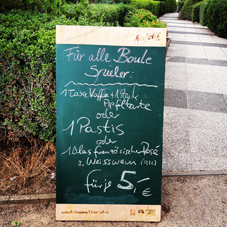 Für alle Boule
Spieler:
1 Tasse Kaffee + 1 Stück
Apfeltarte
oder
1 Pastis
oder
1 Glas französischer Rosé
o. Weisswein
für je 5,-€